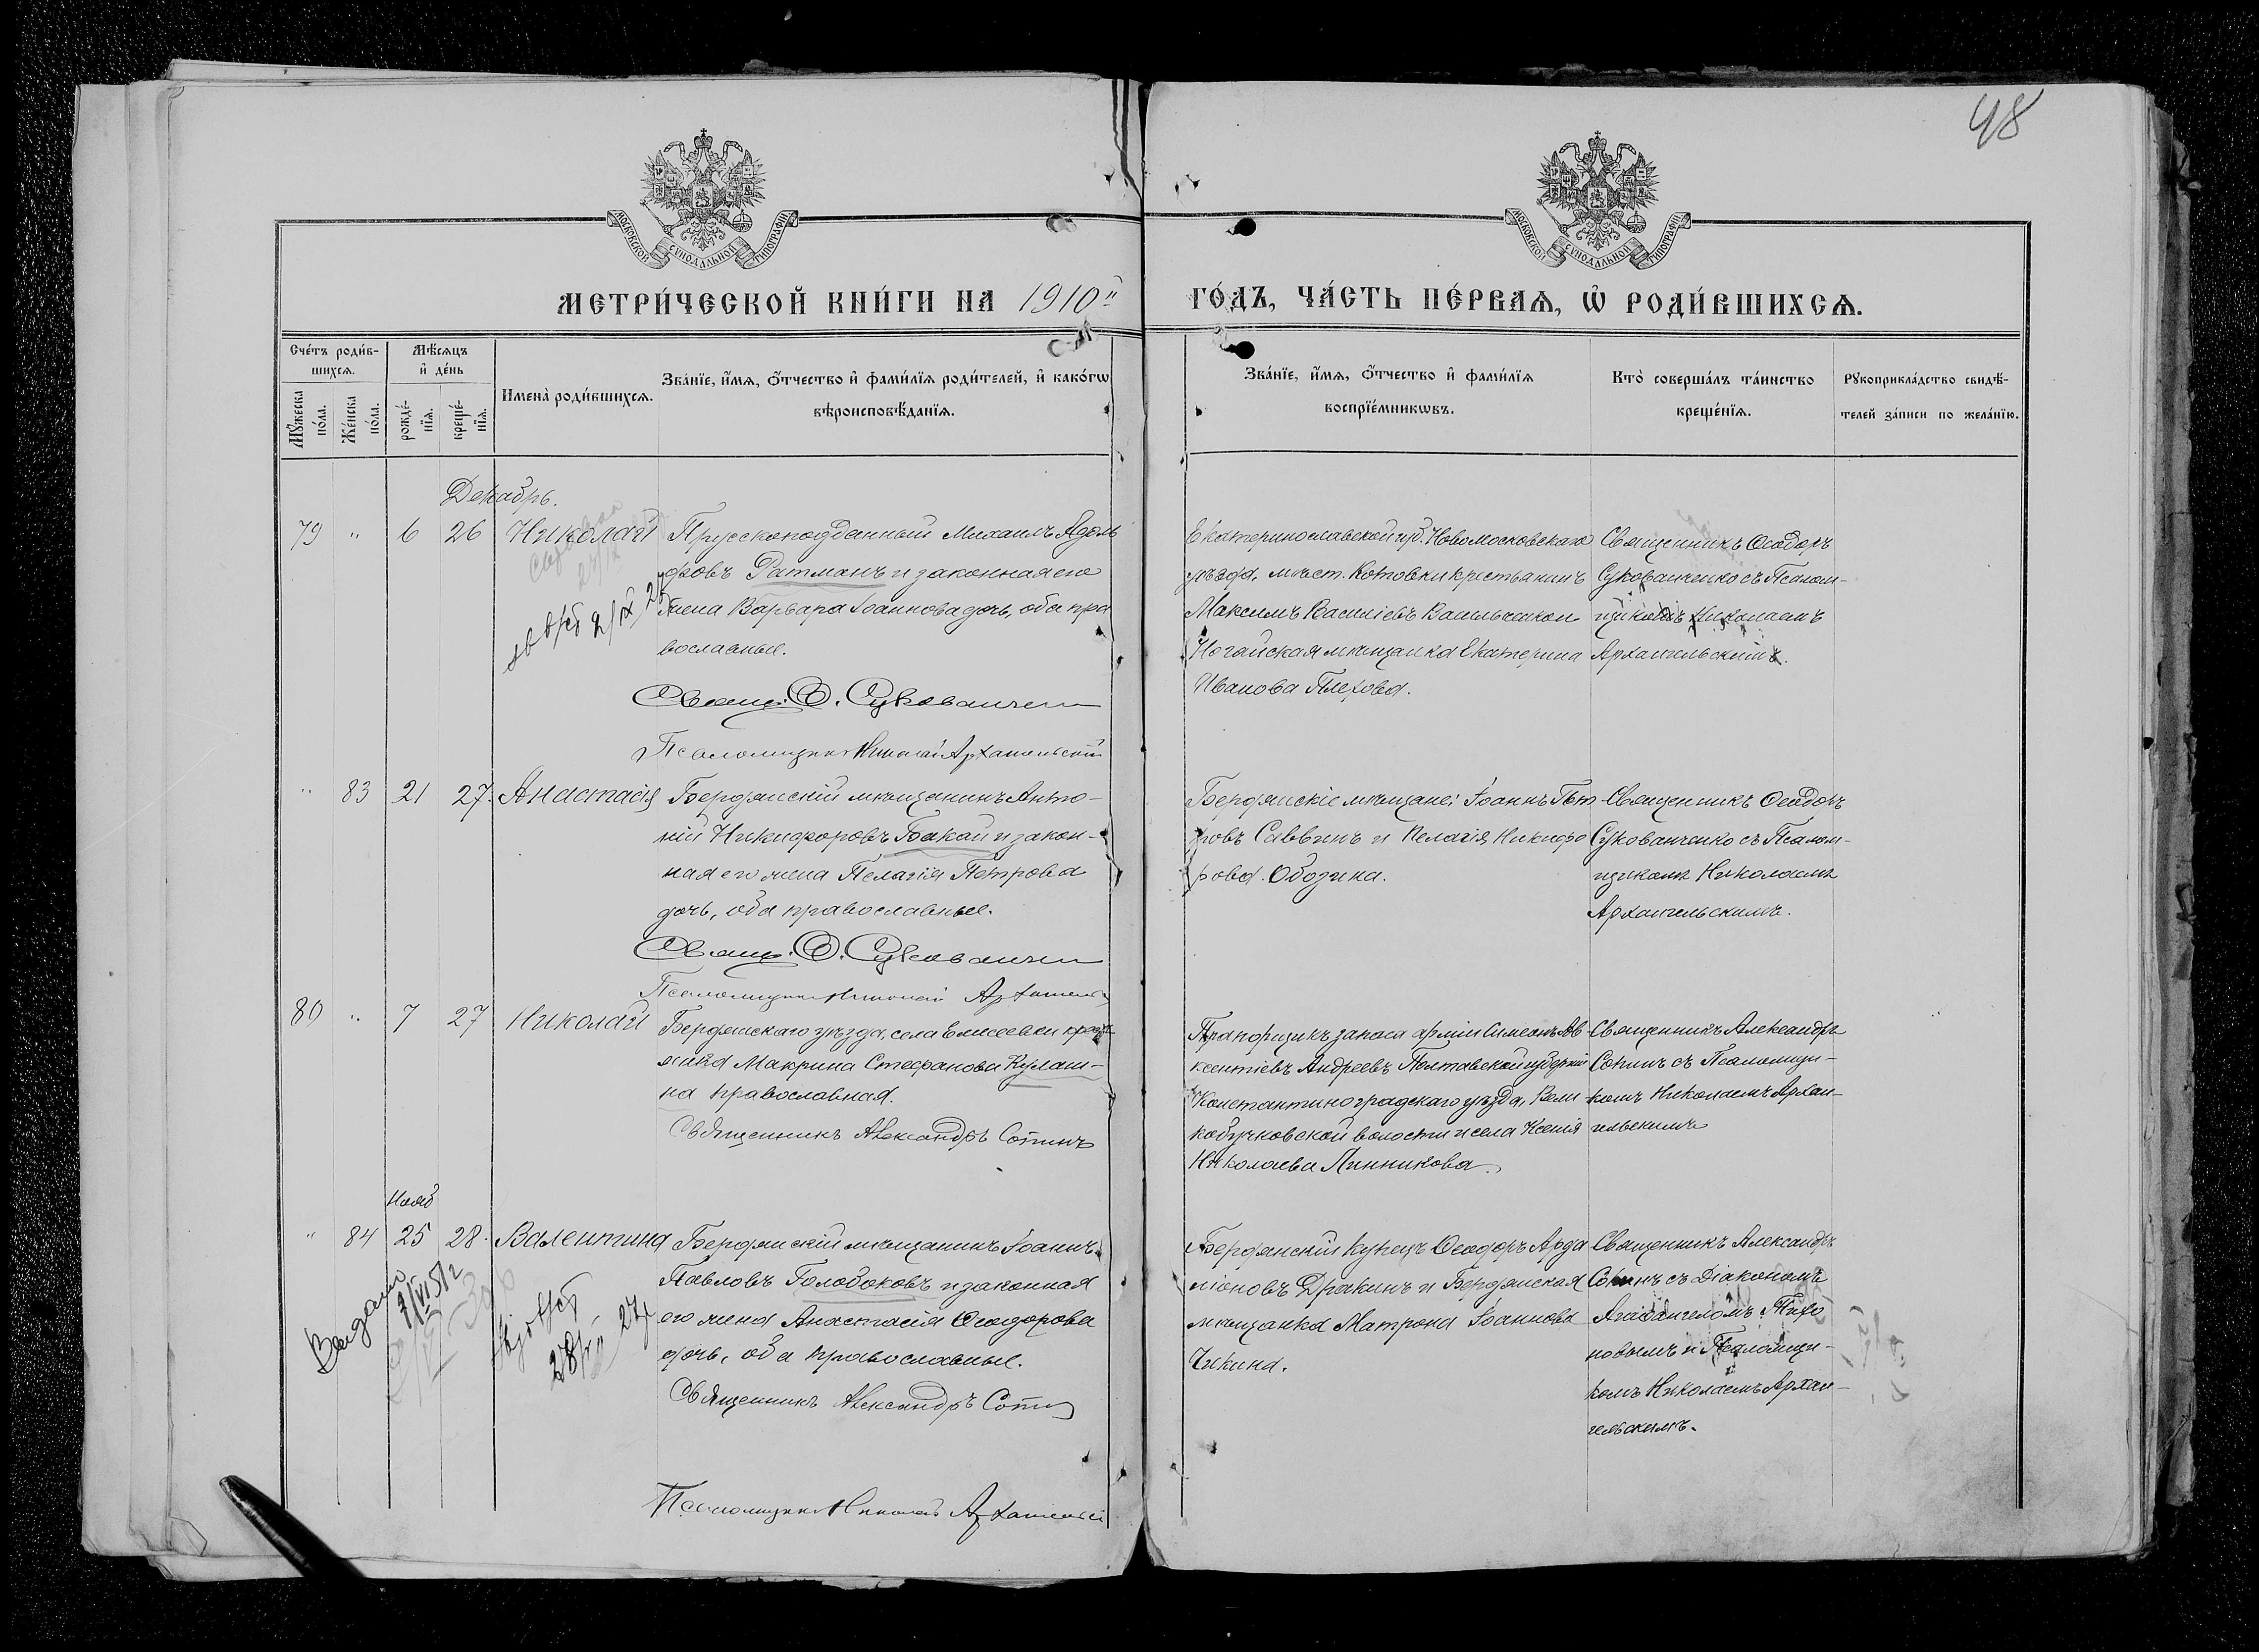 48
МОСКОВСКОЙ СѴНОДАЛЬНОЙ ТИПОГРАФІИ
МОСКОВСКОЙ СѴНОДАЛЬНОЙ ТИПОГРАФІИ
МЕТРИ́ЧЕСКОЙ КНИ́ГИ НА 1910й ГО́ДЪ, ЧА́СТЬ ПЕ́РВАѦ, Ѡ҆ РОДИ́ВШИХСѦ.
Сче́тъ роди́в-
шихсѧ.
Мꙋ́жеска
по́ла.
Же́нска
по́ла.
Мѣ́сѧцъ
и҆ де́нь
рожде́-
нїѧ.
креще́-
нїѧ.
И҆мена̀ роди́вшихсѧ.
Зва́нїе, и҆́мѧ, ѻ҆́тчество и҆ фами́лїѧ роди́телей, и҆ како́гѡ
вѣроисповѣ́данїѧ.
Зва́нїе, и҆́мѧ, ѻ҆́тчество и҆ фами́лїѧ
воспрїе́мникѡвъ.
Кто̀ соверша́лъ та́инство
креще́нїѧ.
Рꙋкоприкла́дство свидѣ́-
телей за́писи по жела́нїю.
Декабрь.
79 " 6 26 Николай
Прусскоподданный Михаилъ Адоль
фовъ Ратманъ и законная его
жена Варвара Іоаннова дочь, оба пра
вославные.
Свящ. Ѳ. Сукованчен
Псаломщикъ Николай Архангельскій
Екатеринославской губ. Новомосковскаго
уѣзда, мѣст. Котовки крестьянинъ
Максимъ Василіевъ
Ногайская мѣщанка Екатерина
Иванова Плехова.
Священникъ Ѳеодоръ
Сукованченко съ Псалом-
щикомъ Николаемъ
Архангельскимъ.
" 83 21 27. Анастасія
Бердянскій мѣщанинъ Анто-
ній Никифоровъ Бакай и закон-
ная его жена Пелагія Петрова
дочь, оба православные.
Свящ. Ѳ. Сукованчен
Псаломщикъ Николай Архангель
Бердянскіе мѣщане: Іоаннъ Пет
ровъ Саввинъ и Пелагія Никифо
рова Обозина.
Священникъ Ѳеодоръ
Сукованченко съ Псалом-
щикомъ Николаемъ
Архангельскимъ.
80 " 7 27 Николай
Бердянскаго уѣзда, села Елисеевки крестья
янка Макрина Стефанова Кулаш-
на православная.
Священникъ Александръ Сопинъ
Прапорщикъ запаса арміи Симеонъ Ав
ксентіевъ Андреевъ Полтавской губерніи
Константиноградскаго уѣзда, Вели
кобучковской волости и села Ксенія
Николаева Линникова.
Священникъ Александръ
Сопинъ съ Псаломщи-
комъ Николаемъ Архан-
гельскимъ
Нояб
" 84 25 28. Валентина
Бердянскій мѣщанинъ Іоаннъ
Павловъ Голобоковъ и законная
его жена Анастасія Ѳеодорова
дочь, оба православные.
Священникъ Александръ Сопин
Псаломщикъ Николай Архангельскі
Бердянскій купецъ Ѳеодоръ Арда
ліоновъ Дракинъ и Бердянская
мѣщанка Матрона Іоаннова
Чикина.
Священникъ Александръ
Сопинъ съ Діакономъ
Агаѳангеломъ Тихо
новымъ и Псаломщи-
комъ Николаемъ Архан-
гельскимъ.